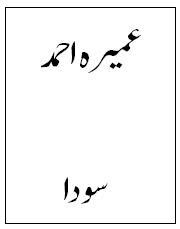 عمیرہ احمد
سودا